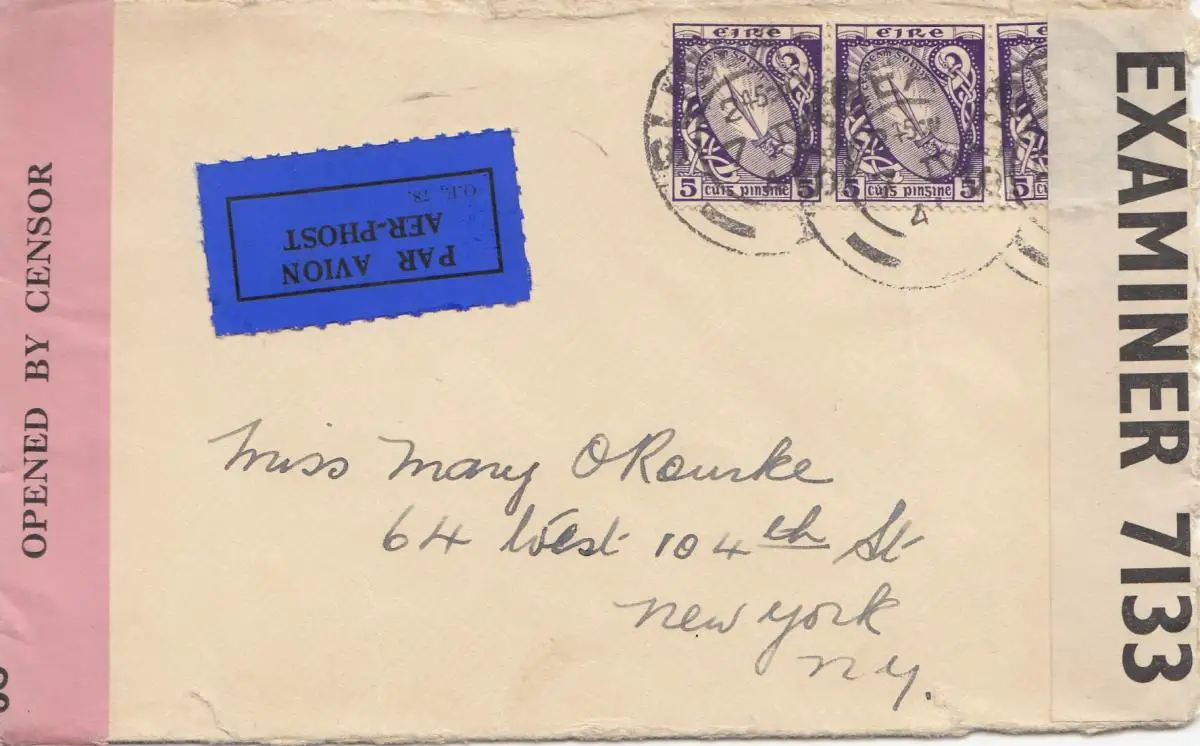 OPENED BY CENSOR
PAR AVION
AER-PHOST
O.E. 78.
éire
5 cúig pinsine 5
éire
5 cúig pinsine 5
éire
5
41
Miss Mary O'Rourke
64 West 104th St
New York
N.Y.
EXAMINER 7133